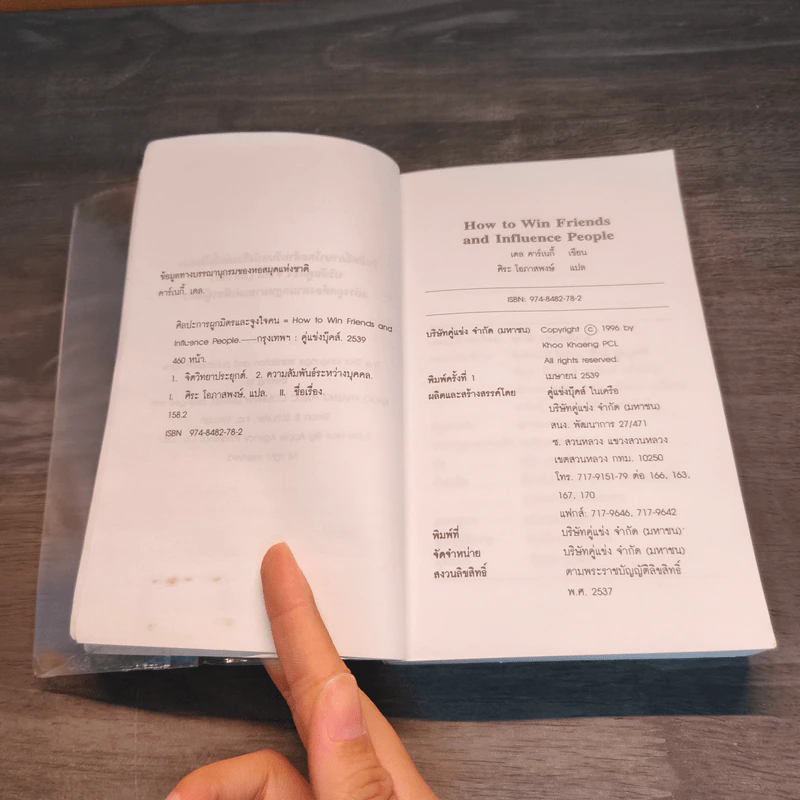 ข้อมูลทางบรรณานุกรมของหอสมุดแห่งชาติ
คาร์เนกี้, เดล.
ศิลปะการผูกมิตรและจูงใจคน = How to Win Friends and
Influence People.——กรุงเทพฯ : คู่แข่งบุ๊คส์. 2539
460 หน้า.
1. จิตวิทยาประยุกต์. 2. ความสัมพันธ์ระหว่างบุคคล.
I. ศิระ โอภาสพงษ์, แปล. II. ชื่อเรื่อง.
158.2
ISBN 974-8482-78-2
How to Win Friends
and Influence People
เดล คาร์เนกี้ เขียน
ศิระ โอภาสพงษ์ แปล
ISBN: 974-8482-78-2
บริษัทคู่แข่ง จำกัด (มหาชน) Copyright © 1996 by
Khoo Khaeng PCL
All rights reserved.
พิมพ์ครั้งที่ 1 เมษายน 2539
ผลิตและสร้างสรรค์โดย คู่แข่งบุ๊คส์ ในเครือ
บริษัทคู่แข่ง จำกัด (มหาชน)
สนง. พัฒนาการ 27/471
ซ. สวนหลวง แขวงสวนหลวง
เขตสวนหลวง กทม. 10250
โทร. 717-9151-79 ต่อ 166, 163,
167, 170
แฟกส์: 717-9646, 717-9642
พิมพ์ที่ บริษัทคู่แข่ง จำกัด (มหาชน)
จัดจำหน่าย บริษัทคู่แข่ง จำกัด (มหาชน)
สงวนลิขสิทธิ์ ตามพระราชบัญญัติลิขสิทธิ์
พ.ศ. 2537